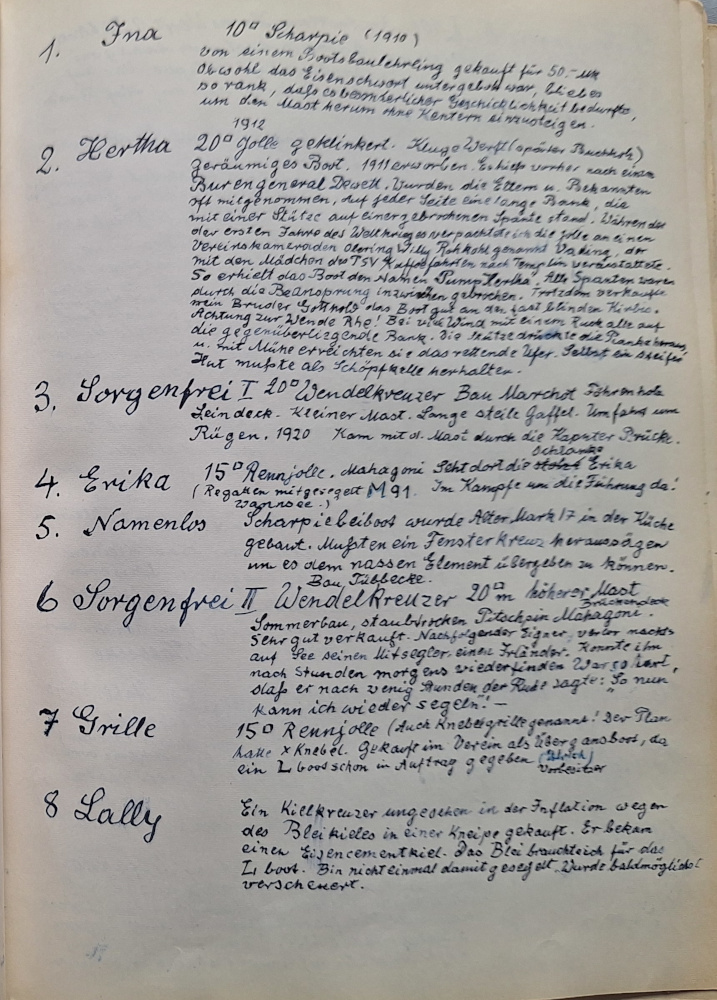 1. Ina 10□ Scharpie (1910)
von einem Bootsbaulehrling gekauft für 50.- Mk
Obwohl das Eisenschwert untergeben war, blieb es
so rank, daß es besonderlicher Geschicklichkeit bedurfte,
um den Mast herum ohne Kentern einzusteigen.
1912
2. Hertha 20□ Jolle geklinkert. Kluge Werft (später Buchholz)
geräumiges Boot. 1911 erworben. Es hieß vorher nach einem
Burengeneral Dewett. Wurden die Eltern u. Bekannten
oft mitgenommen, auf jeder Seite eine lange Bank, die
mit einer Stütze auf einer gebrochenen Spante stand. Während der
der ersten Jahre des Weltkrieges verpachtete ich die Jolle an einen
Vereinskameraden Willy Rohkohl genannt Vaking, der
mit den Mädchen des TSV Kaffeefahrten nach Templin veranstaltete.
So erhielt das Boot den Namen "Pump Hertha". Alle Spanten waren
durch die Beanspruchung inzwischen gebrochen. Trotzdem verkaufte
mein Bruder Gotthold das Boot gut an den fast blinden
Achtung zur Wende Rhe! Bei viel Wind mit einem Ruck alle auf
die gegenüberliegende Bank. Die Stütze drückte die Planke heraus,
u. mit Mühe erreichten sie das rettende Ufer. Selbst ein steifer
Hut mußte als Schöpfkelle herhalten.
3. Sorgenfrei I 20□ Wendelkreuzer Bau Marchot Föhrenholz
Leindeck. Kleiner Mast. Lange steile Gaffel. Umfahrt um
Rügen. 1920 Kam mit st. Mast durch die Caputer Brücke.
Schranke
4. Erika 15□ Rennjolle. Mahagoni Seht dort die stolze Erika
(Regatten mitgesegelt M91. Im Kampfe um die Führung da!
Wannsee.)
5. Namenlos Scharpiebeiboot wurde Alter Markt 17 in der Küche
gebaut. Mußten ein Fensterkreuz heraussägen
um es dem nassen Element übergeben zu können.
Bau Tübbecke.
6 Sorgenfrei II Wendelkreuzer 20□m höherer Mast
Brückendeck
Sommerbau, staubtrocken Pitschpin Mahagoni.
Sehr gut verkauft. Nachfolgender Eigner, verlor nachts
auf See seinen Mitsegler, einen Irländer. Konnte ihn
nach Stunden morgens wiederfinden War so hart,
daß er nach wenig Stunden der Ruhe sagte: "So nun
kann ich wieder segeln!" —
7 Grille 15□ Rennjolle (Auch Knebelgrille genannt! Der Plan
hatte x Knebel. Gekauft im Verein als Übergansboot, da
ein L boot schon in Auftrag gegeben
Vorbesitzer
8 Lally Ein Kielkreuzer ungesehen in der Inflation wegen
des Bleikieles in einer Kneipe gekauft. Er bekam
einen Eisencementkiel. Das Blei brauchte ich für das
L boot. Bin nicht einmal damit gesegelt. Wurde baldmöglichst
verscheuert.